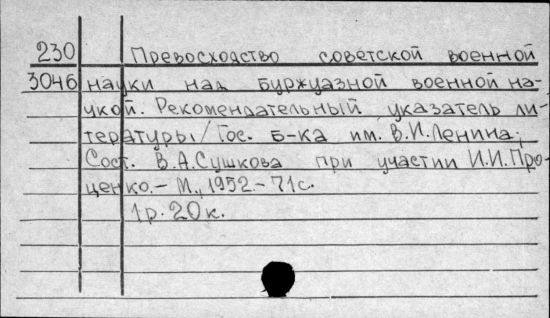 230 Превосходство советской военной
3046 науки над буржуазной военной на-
укой. Рекомендательный указатель ли-
тературы/Гос. б-ка им. В.И.Ленина;
Сост. В.А.Сушкова при участии И.И.Про-
ценко.- М., 1952.- 71с.
1р. 20к.